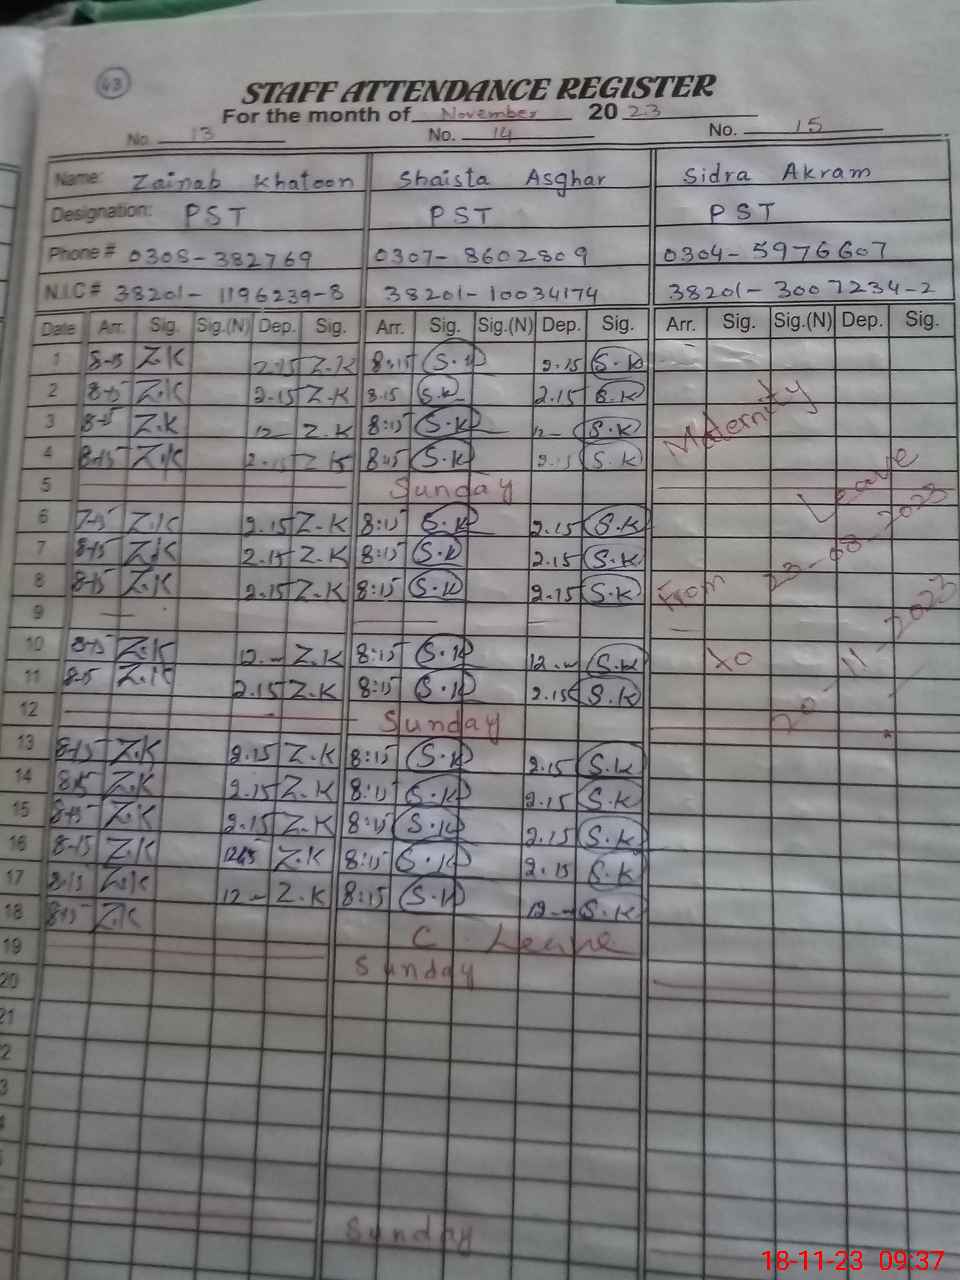 43
STAFF ATTENDANCE REGISTER
For the month of November 2023
No. 13 No. 14 No. 15
Name: Zainab Khatoon Shaista Asghar Sidra Akram
Designation: PST PST PST
Phone # 0308-382769 0307-8602809 0304-5976607
N.I.C # 38201-1196239-8 38201-10034174 38201-3007234-2
Date Arr. Sig. Sig.(N) Dep. Sig. Arr. Sig. Sig.(N) Dep. Sig. Arr. Sig. Sig.(N) Dep. Sig.
1 8-15 Z.K 2.15 Z.K 8:15 S.K 2.15 S.K
2 8-15 Z.K 2.15 Z.K 8.15 S.K 2.15 S.K
3 8-15 Z.K 12 Z.K 8:15 S.K 12 S.K
Maternity
4 8-15 Z.K 2.15 Z.K 8:15 S.K 2.15 S.K
5 Sunday
Leave
6 Z.K 2.15 Z.K 8:15 S.K 2.15 S.K
7 8-15 Z.K 2.15 Z.K 8:15 S.K 2.15 S.K
8 8-15 Z.K 2.15 Z.K 8:15 S.K 2.15 S.K
From 23-08-2023
9
10 8-15 Z.K 12 Z.K 8:15 S.K 12 S.K
to 20-11-2023
11 8-15 Z.K 2.15 Z.K 8:15 S.K 2.15 S.K
12 Sunday
13 8-15 Z.K 2.15 Z.K 8:15 S.K 2.15 S.K
14 8-15 Z.K 2.15 Z.K 8:15 S.K 2.15 S.K
15 8-15 Z.K 2.15 Z.K 8:15 S.K 2.15 S.K
16 8-15 Z.K Z.K 8:15 S.K 2.15 S.K
17 8-15 Z.K 12 Z.K 8:15 S.K 12 S.K
18 8-15 Z.K C. Leave
19 Sunday
20
21
2
3
Sunday
18-11-23 09:37